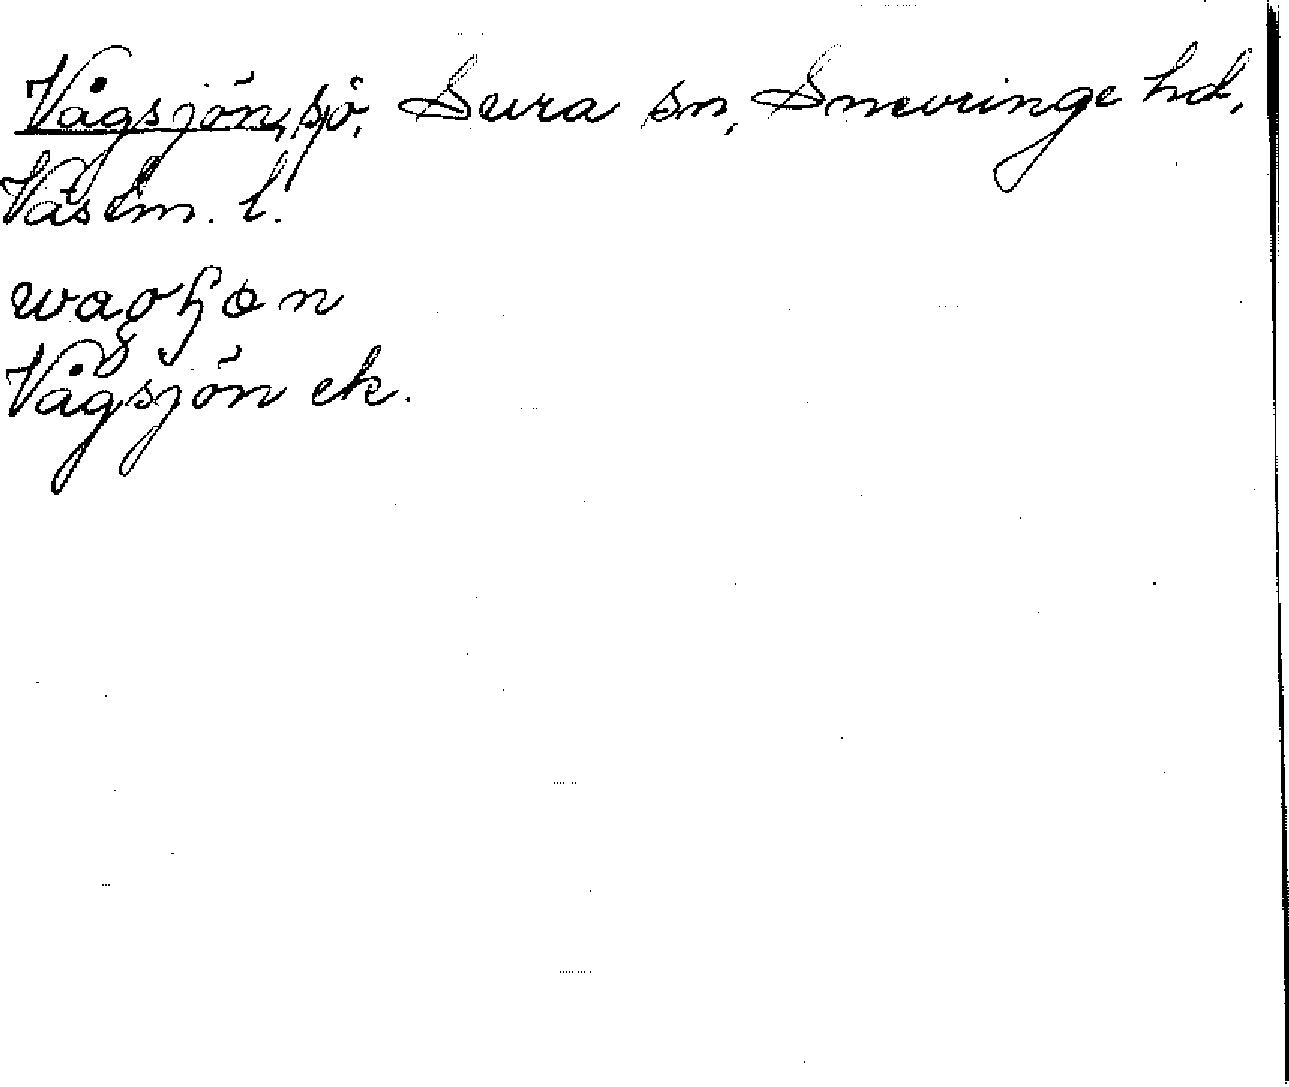 Vågsjön, sjö, Sura sn, Snevringe hd,
Västm. l.
Vågsjön ek.